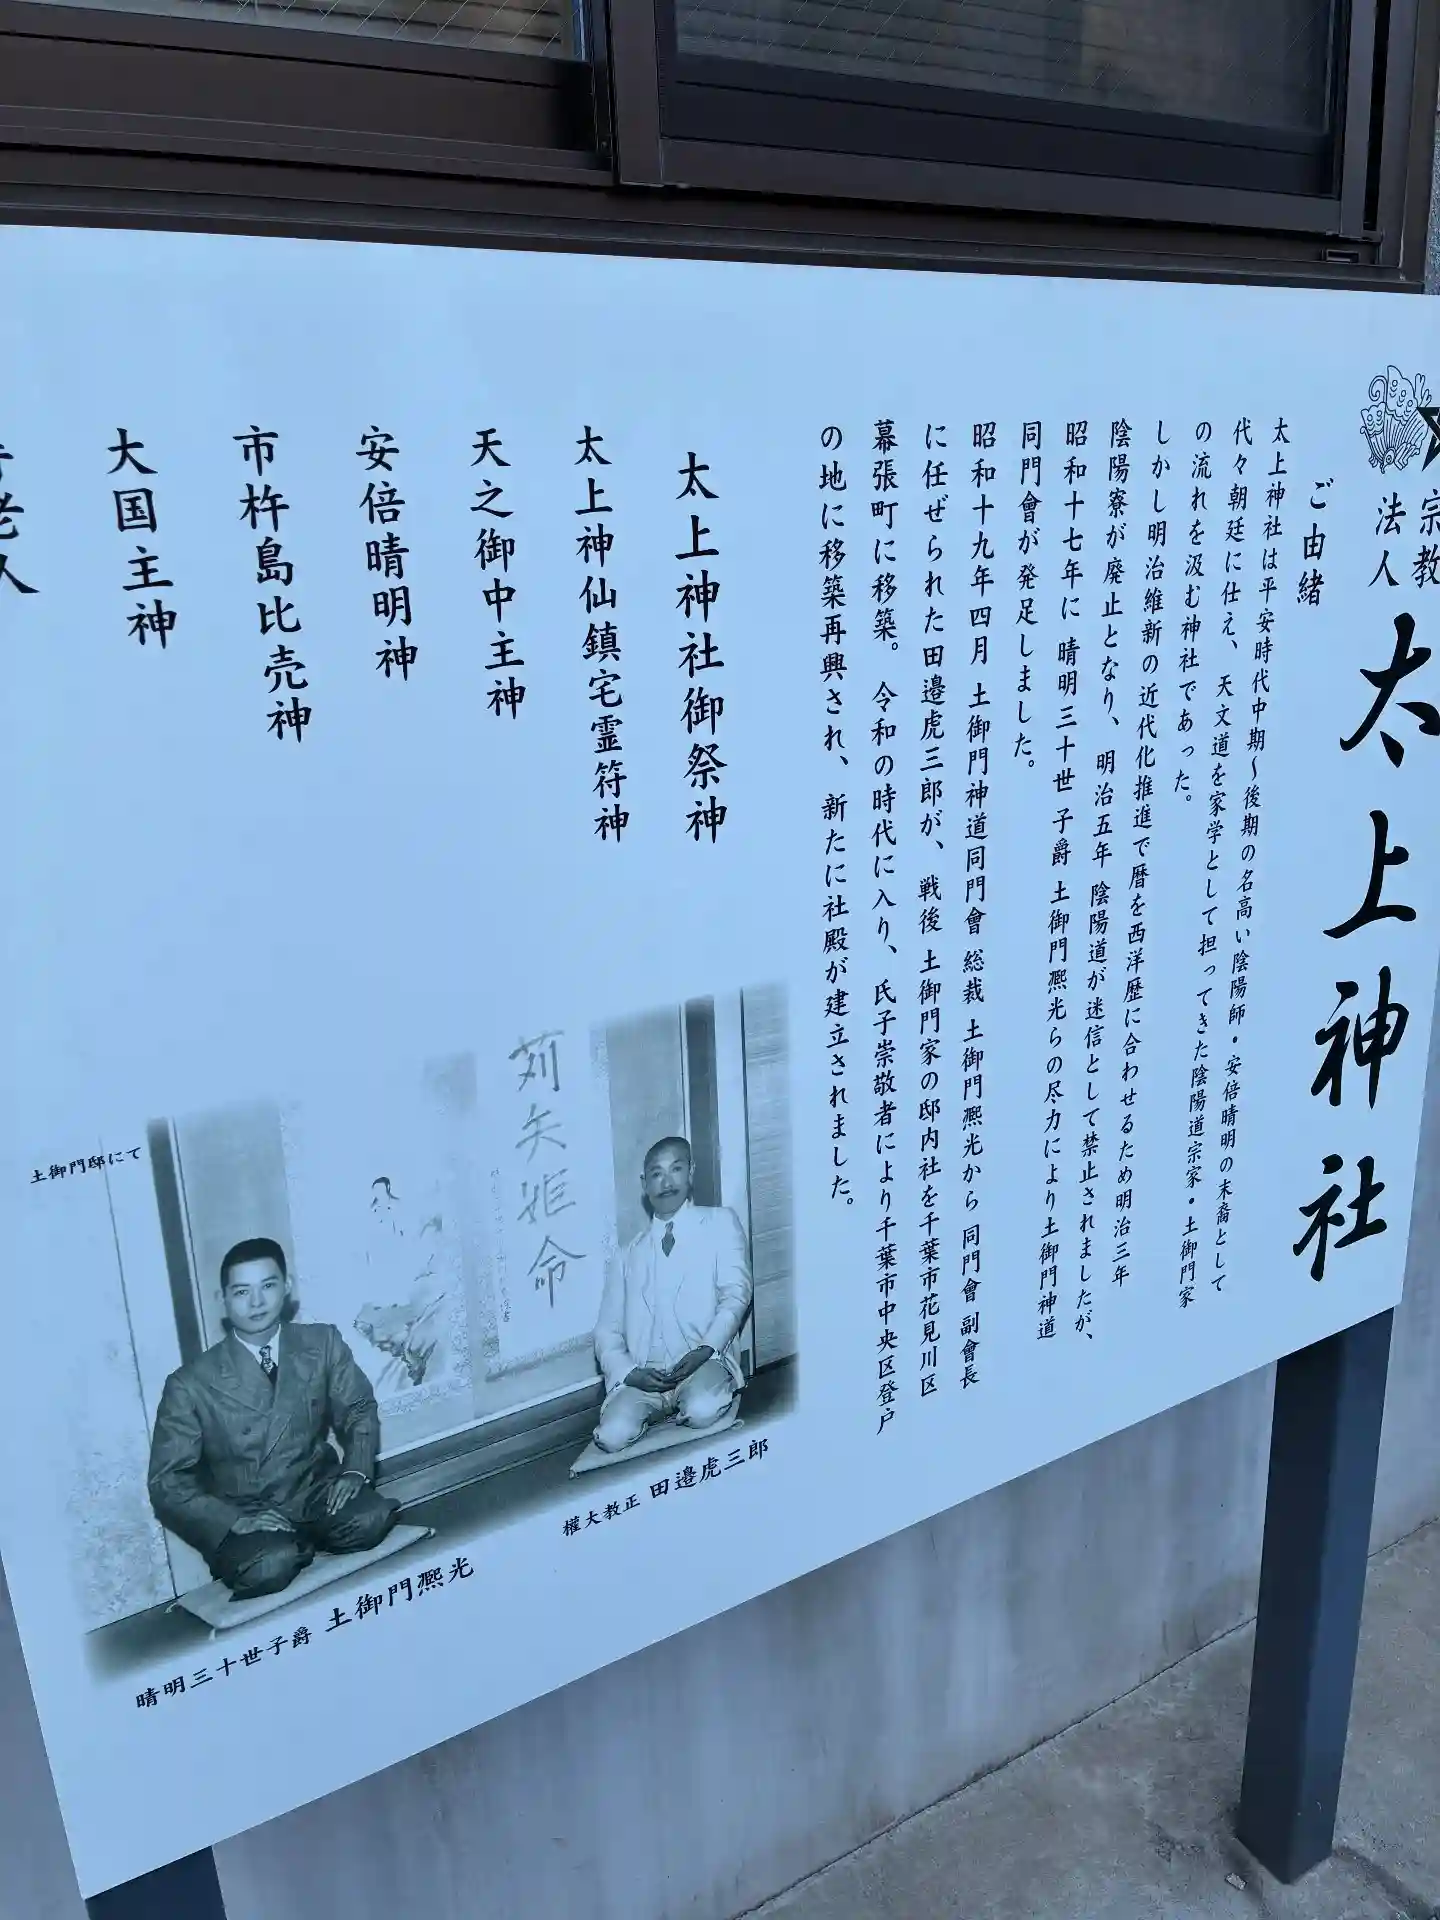 宗教
法人
太上神社
ご由緒
太上神社は平安時代中期〜後期の名高い陰陽師・安倍晴明の末裔として
代々朝廷に仕え、天文道を家学として担ってきた陰陽道宗家・土御門家
の流れを汲む神社であった。
しかし明治維新の近代化推進で暦を西洋歴に合わせるため明治三年
陰陽寮が廃止となり、明治五年 陰陽道が迷信として禁止されましたが、
昭和十七年に 晴明三十世 子爵 土御門凞光らの尽力により土御門神道
同門會が発足しました。
昭和十九年四月 土御門神道同門會 総裁 土御門凞光から 同門會 副會長
に任ぜられた田邉虎三郎が、戦後 土御門家の邸内社を千葉市花見川区
幕張町に移築。令和の時代に入り、氏子崇敬者により千葉市中央区登戸
の地に移築再興され、新たに社殿が建立されました。
太上神社御祭神
太上神仙鎮宅霊符神
天之御中主神
安倍晴明神
市杵島比売神
大国主神
土御門邸にて
權大教正 田邉虎三郎
晴明三十世子爵 土御門凞光